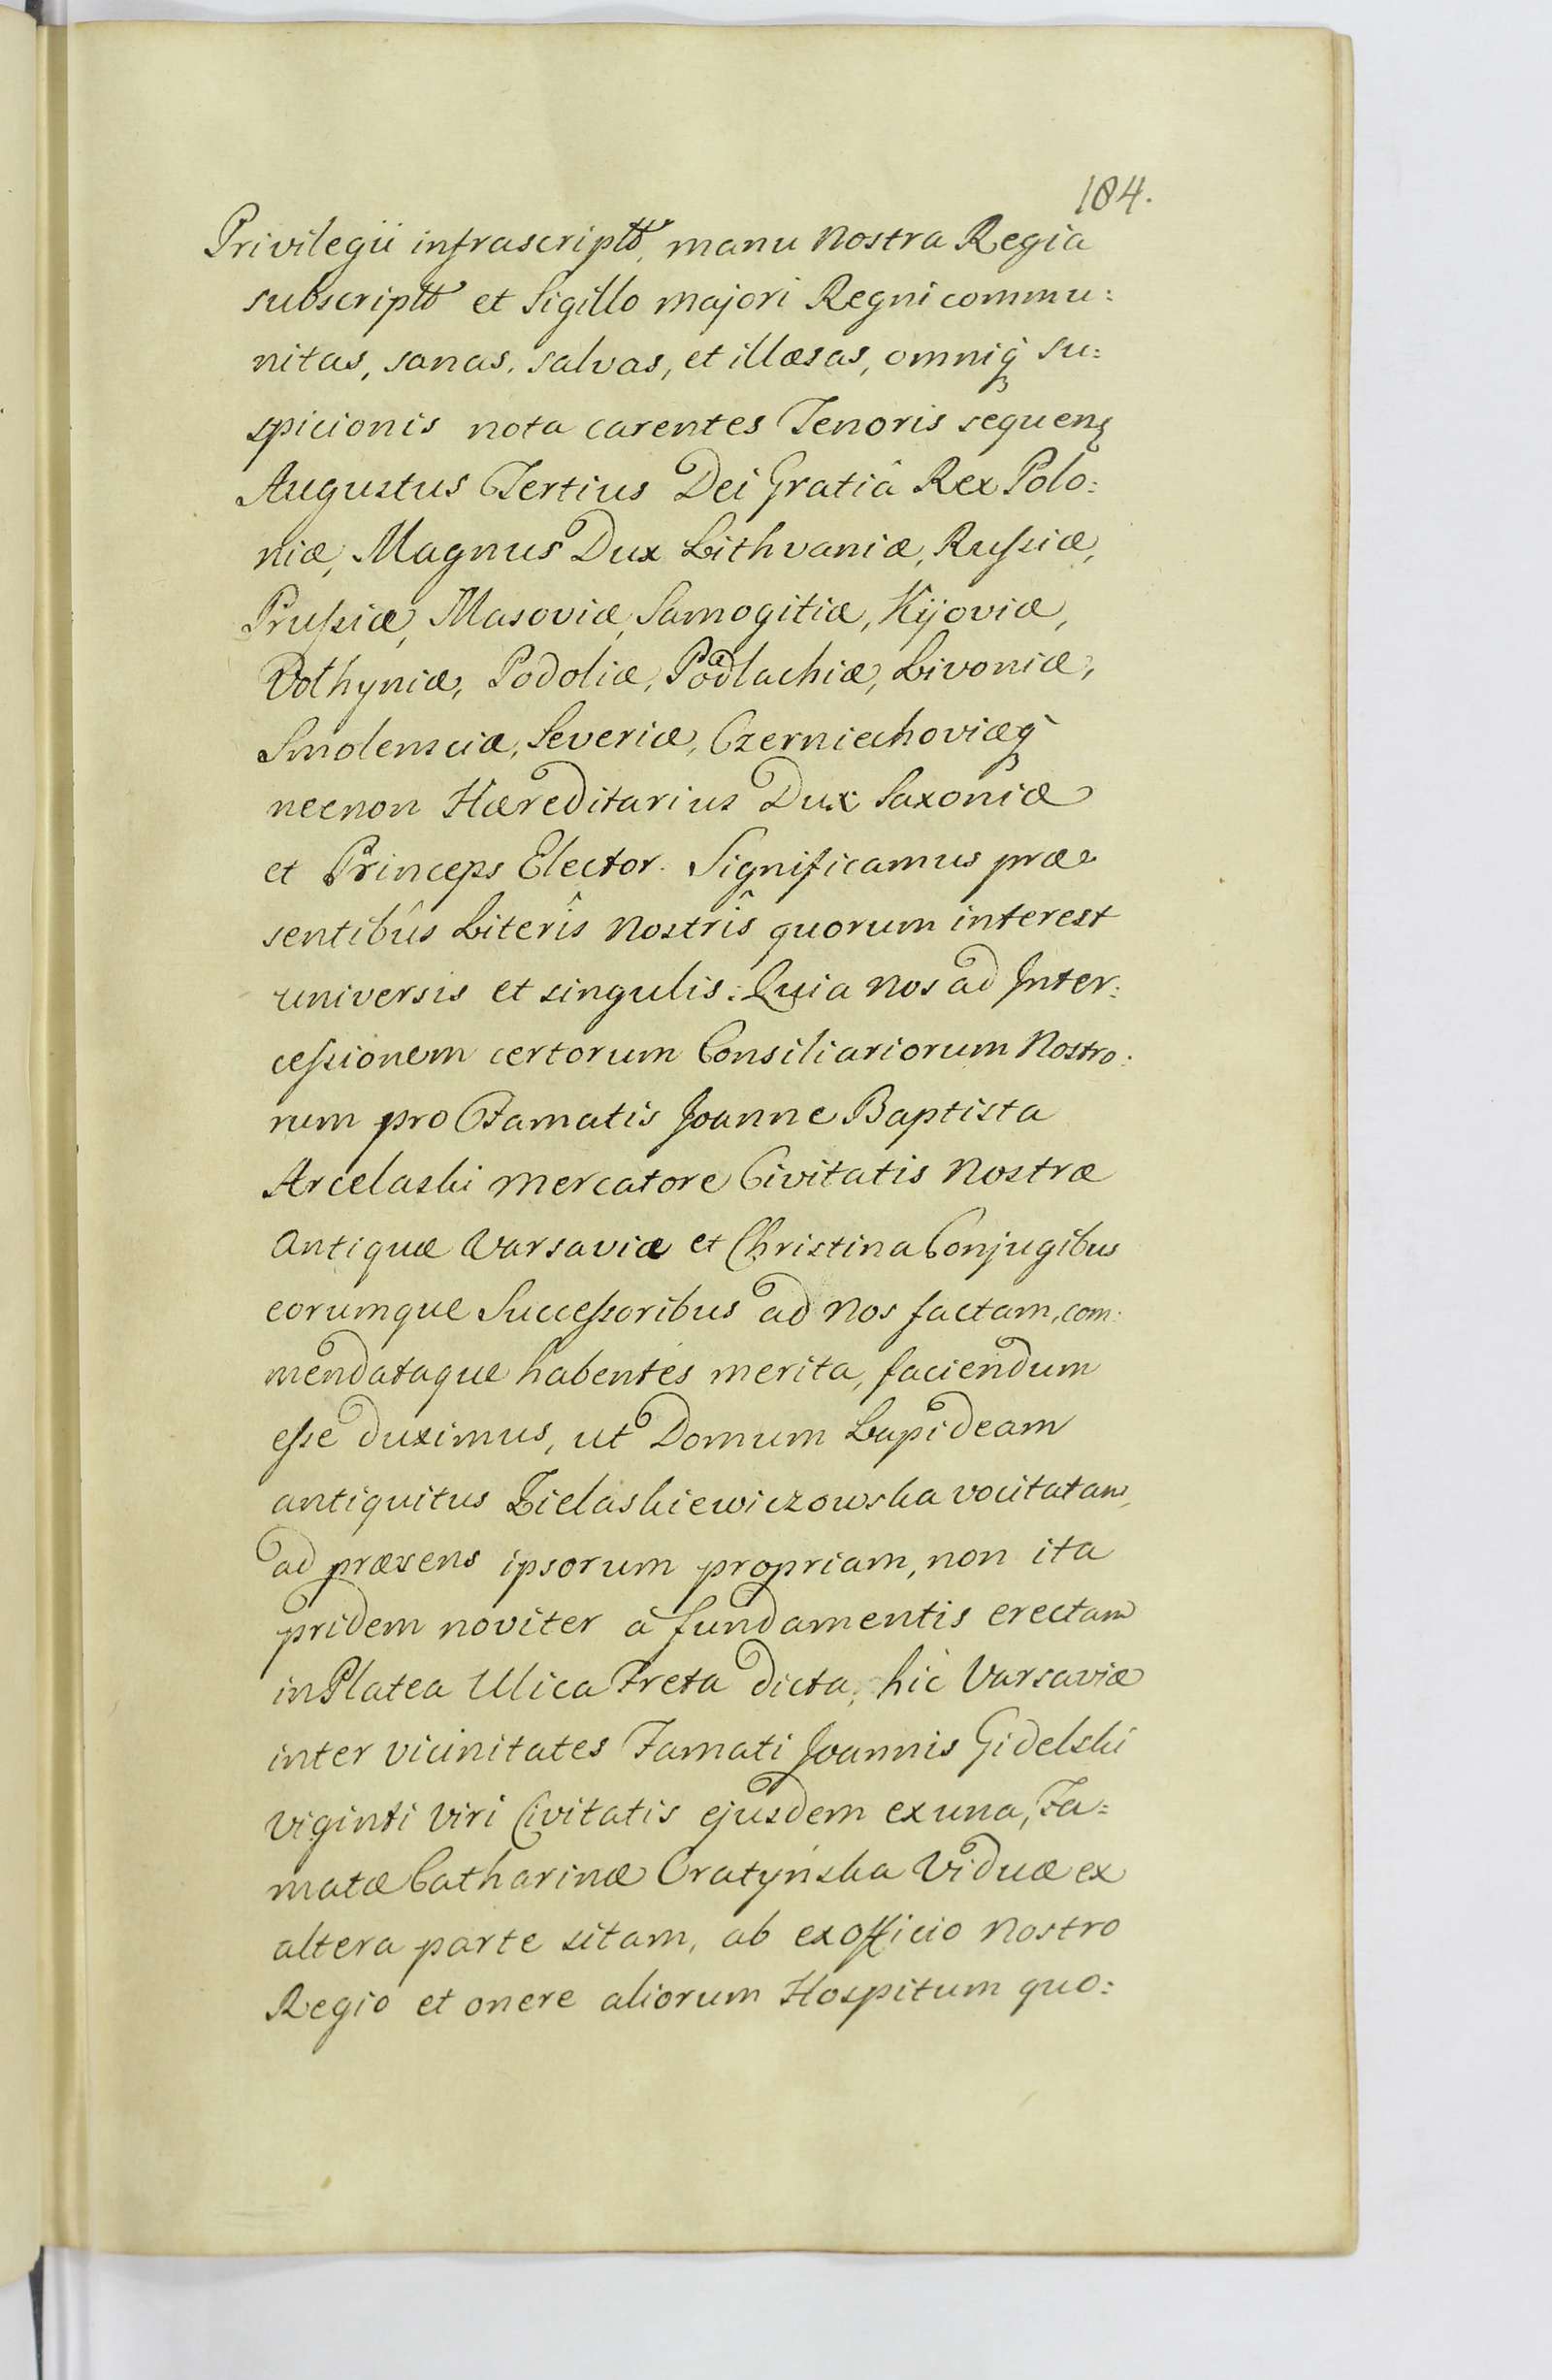 184.
Privilegii infrascriptt, manu Nostra Regia
subscriptt et Sigillo majori Regni commu:
nitas, sanas, salvas, et illæsas, omniq́ su:
spicionis nota carentes Tenoris sequen
Augustus Tertius Dei Gratiâ Rex Polo:
niæ, Magnus Dux Lithvaniæ, Rußiæ,
Prußiæ, Masoviæ, Samogitiæ, Kijoviæ,
Volhyniæ, Podoliæ, Podlachiæ, Livoniæ,
Smolensciæ, Severiæ, Czerniechoviæq́
necnon Hæreditarius Dux Saxoniæ
et Princeps Elector. Significamus præ
sentibûs Literîs Nostrîs quorum interest
universis et singulis: Quia Nos ad Inter:
ceßionem certorum Consiliariorum Nostro:
rum pro Famatis Joanne Baptista
Arcelaski Mercatore Civitatis Nostræ
Antiquæ Varsaviæ et Christina Conjugibus
eorumque Succeßoribus ad Nos factam, com:
mendataque habentes merita, faciendum
eße duximus, ut Domum Lapideam
antiquitus Zielaskiewiczowska vocitatam,
ad præsens ipsorum propriam, non ita
pridem noviter à fundamentis erectam
in Platea Ulica Freta dicta, hic Varsaviæ
inter vicinitates Famati Joannis Gidelski
Viginti Viri Civitatis ejusdem ex una, Fa:
matæ Catharinæ Oratyńska Viduæ ex
altera parte sitam, ab ex Officio Nostro
Regio et onere aliorum Hospitum quo: